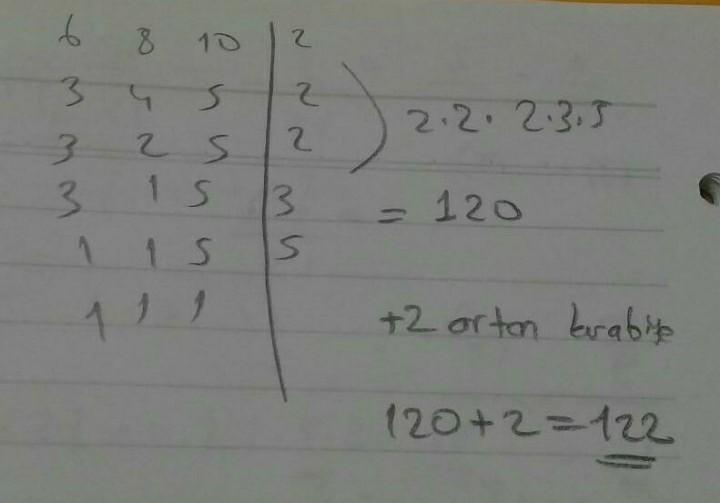 6 8 10 | 2
3 4 5 | 2
3 2 5 | 2
3 1 5 | 3
1 1 5 | 5
1 1 1 |
2.2. 2.3.5
= 120
+2 artan kurabiye
120+2=122